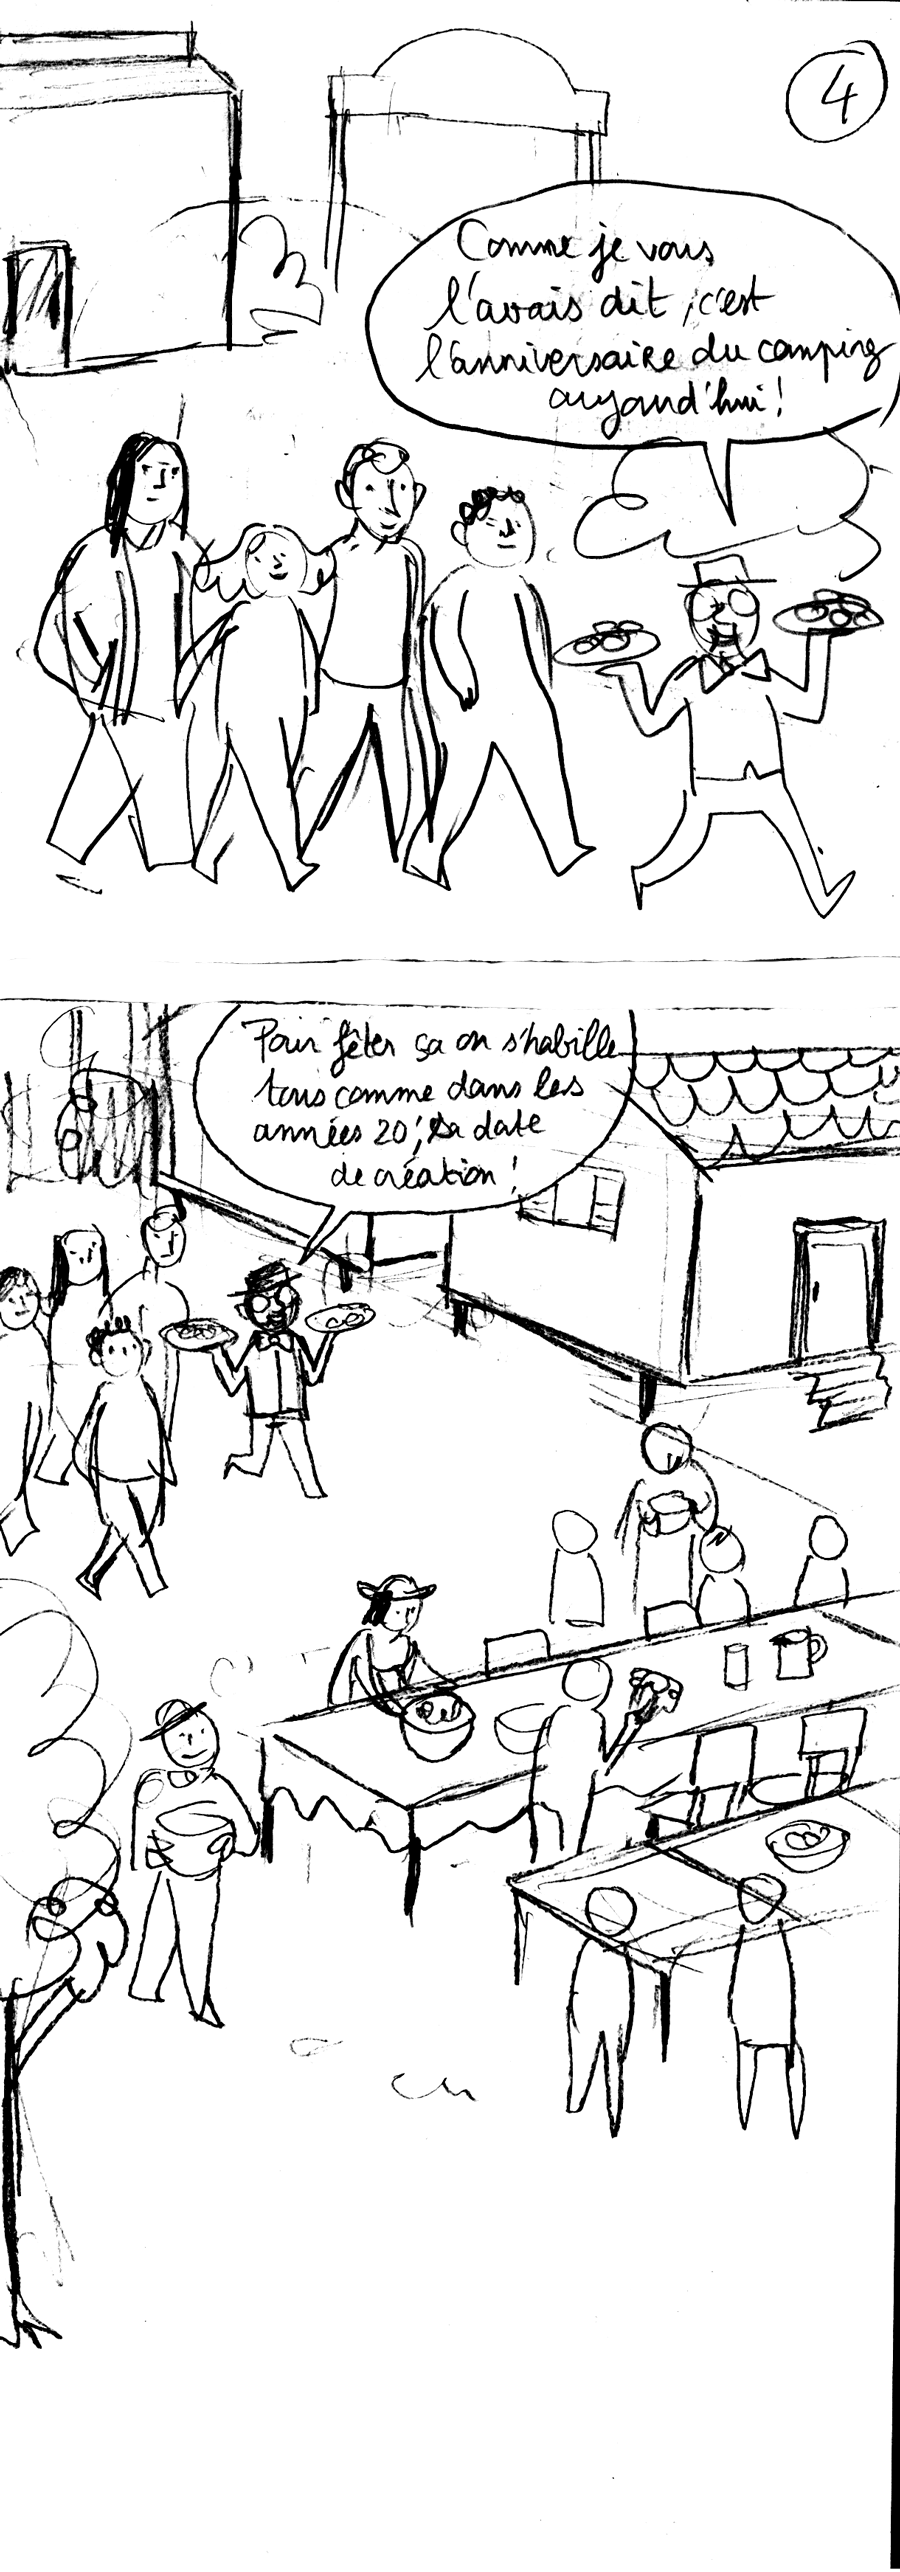 4
Comme je vous
l'avais dit, c'est
l'anniversaire du camping
aujourd'hui !
Pour fêter ça on s'habille
tous comme dans les
années 20', sa date
de création !